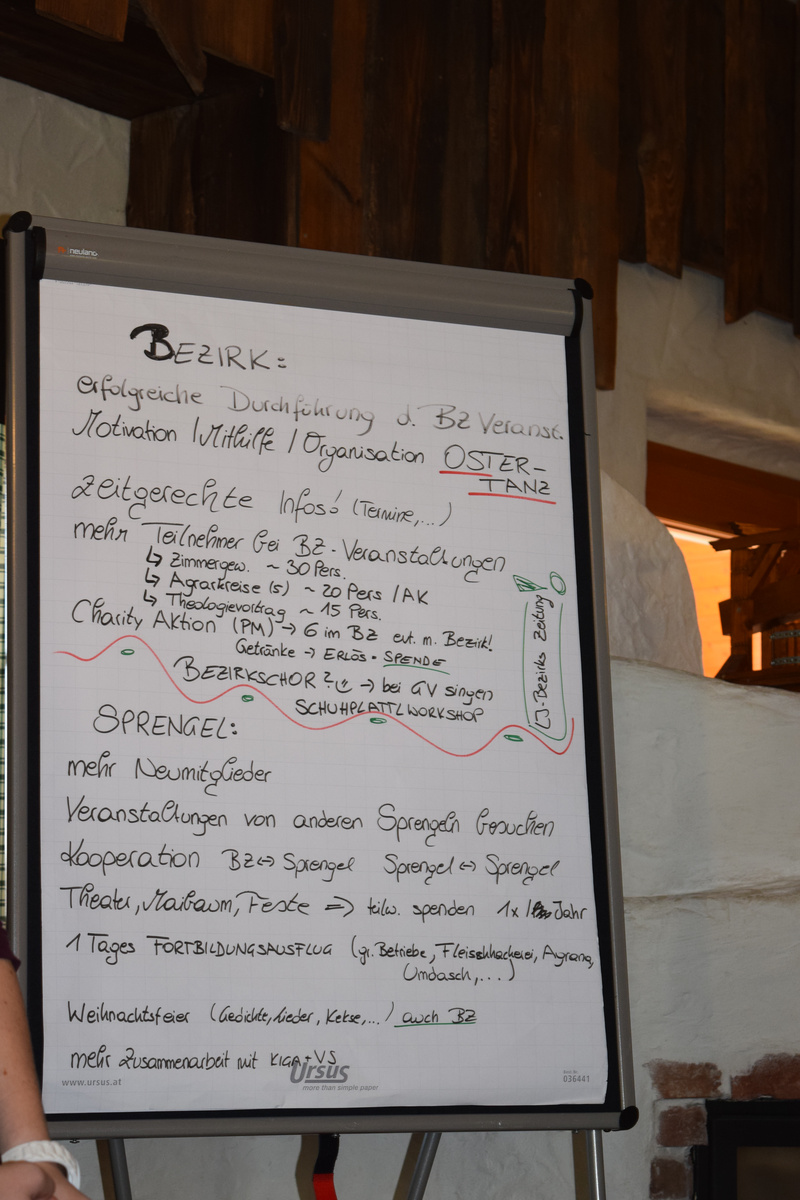 neuland
BEZIRK:
erfolgreiche Durchführung d. BZ Veranst.
Motivation / Mithilfe / Organisation OSTER-
TANZ
zeitgerechte Infos! (Termine,...)
mehr Teilnehmer bei BZ-Veranstaltungen
↳ Zimmergew. ~ 30 Pers.
↳ Agrarkreise (s) ~ 20 Pers / AK
↳ Theologievortrag ~ 15 Pers.
Charity Aktion (PM) → 6 im BZ evt. m. Bezirk!
Getränke → ERLÖS = SPENDE
BEZIRKSCHOR? → bei GV singen
SCHUHPLATTLWORKSHOP
LJ-Bezirks Zeitung
SPRENGEL:
mehr Neumitglieder
Veranstaltungen von anderen Sprengeln besuchen
Kooperation BZ ↔ Sprengel Sprengel ↔ Sprengel
Theater, Maibaum, Feste => teilw. spenden 1x / Jahr
1 Tages FORTBILDUNGSAUSFLUG (gr. Betriebe, Fleischhackerei, Agrana,
Umdasch,...)
Weihnachtsfeier (Gedichte, Lieder, Kekse,...) auch BZ
mehr Zusammenarbeit mit KIGA + VS
www.ursus.at
Ursus
more than simple paper
036441